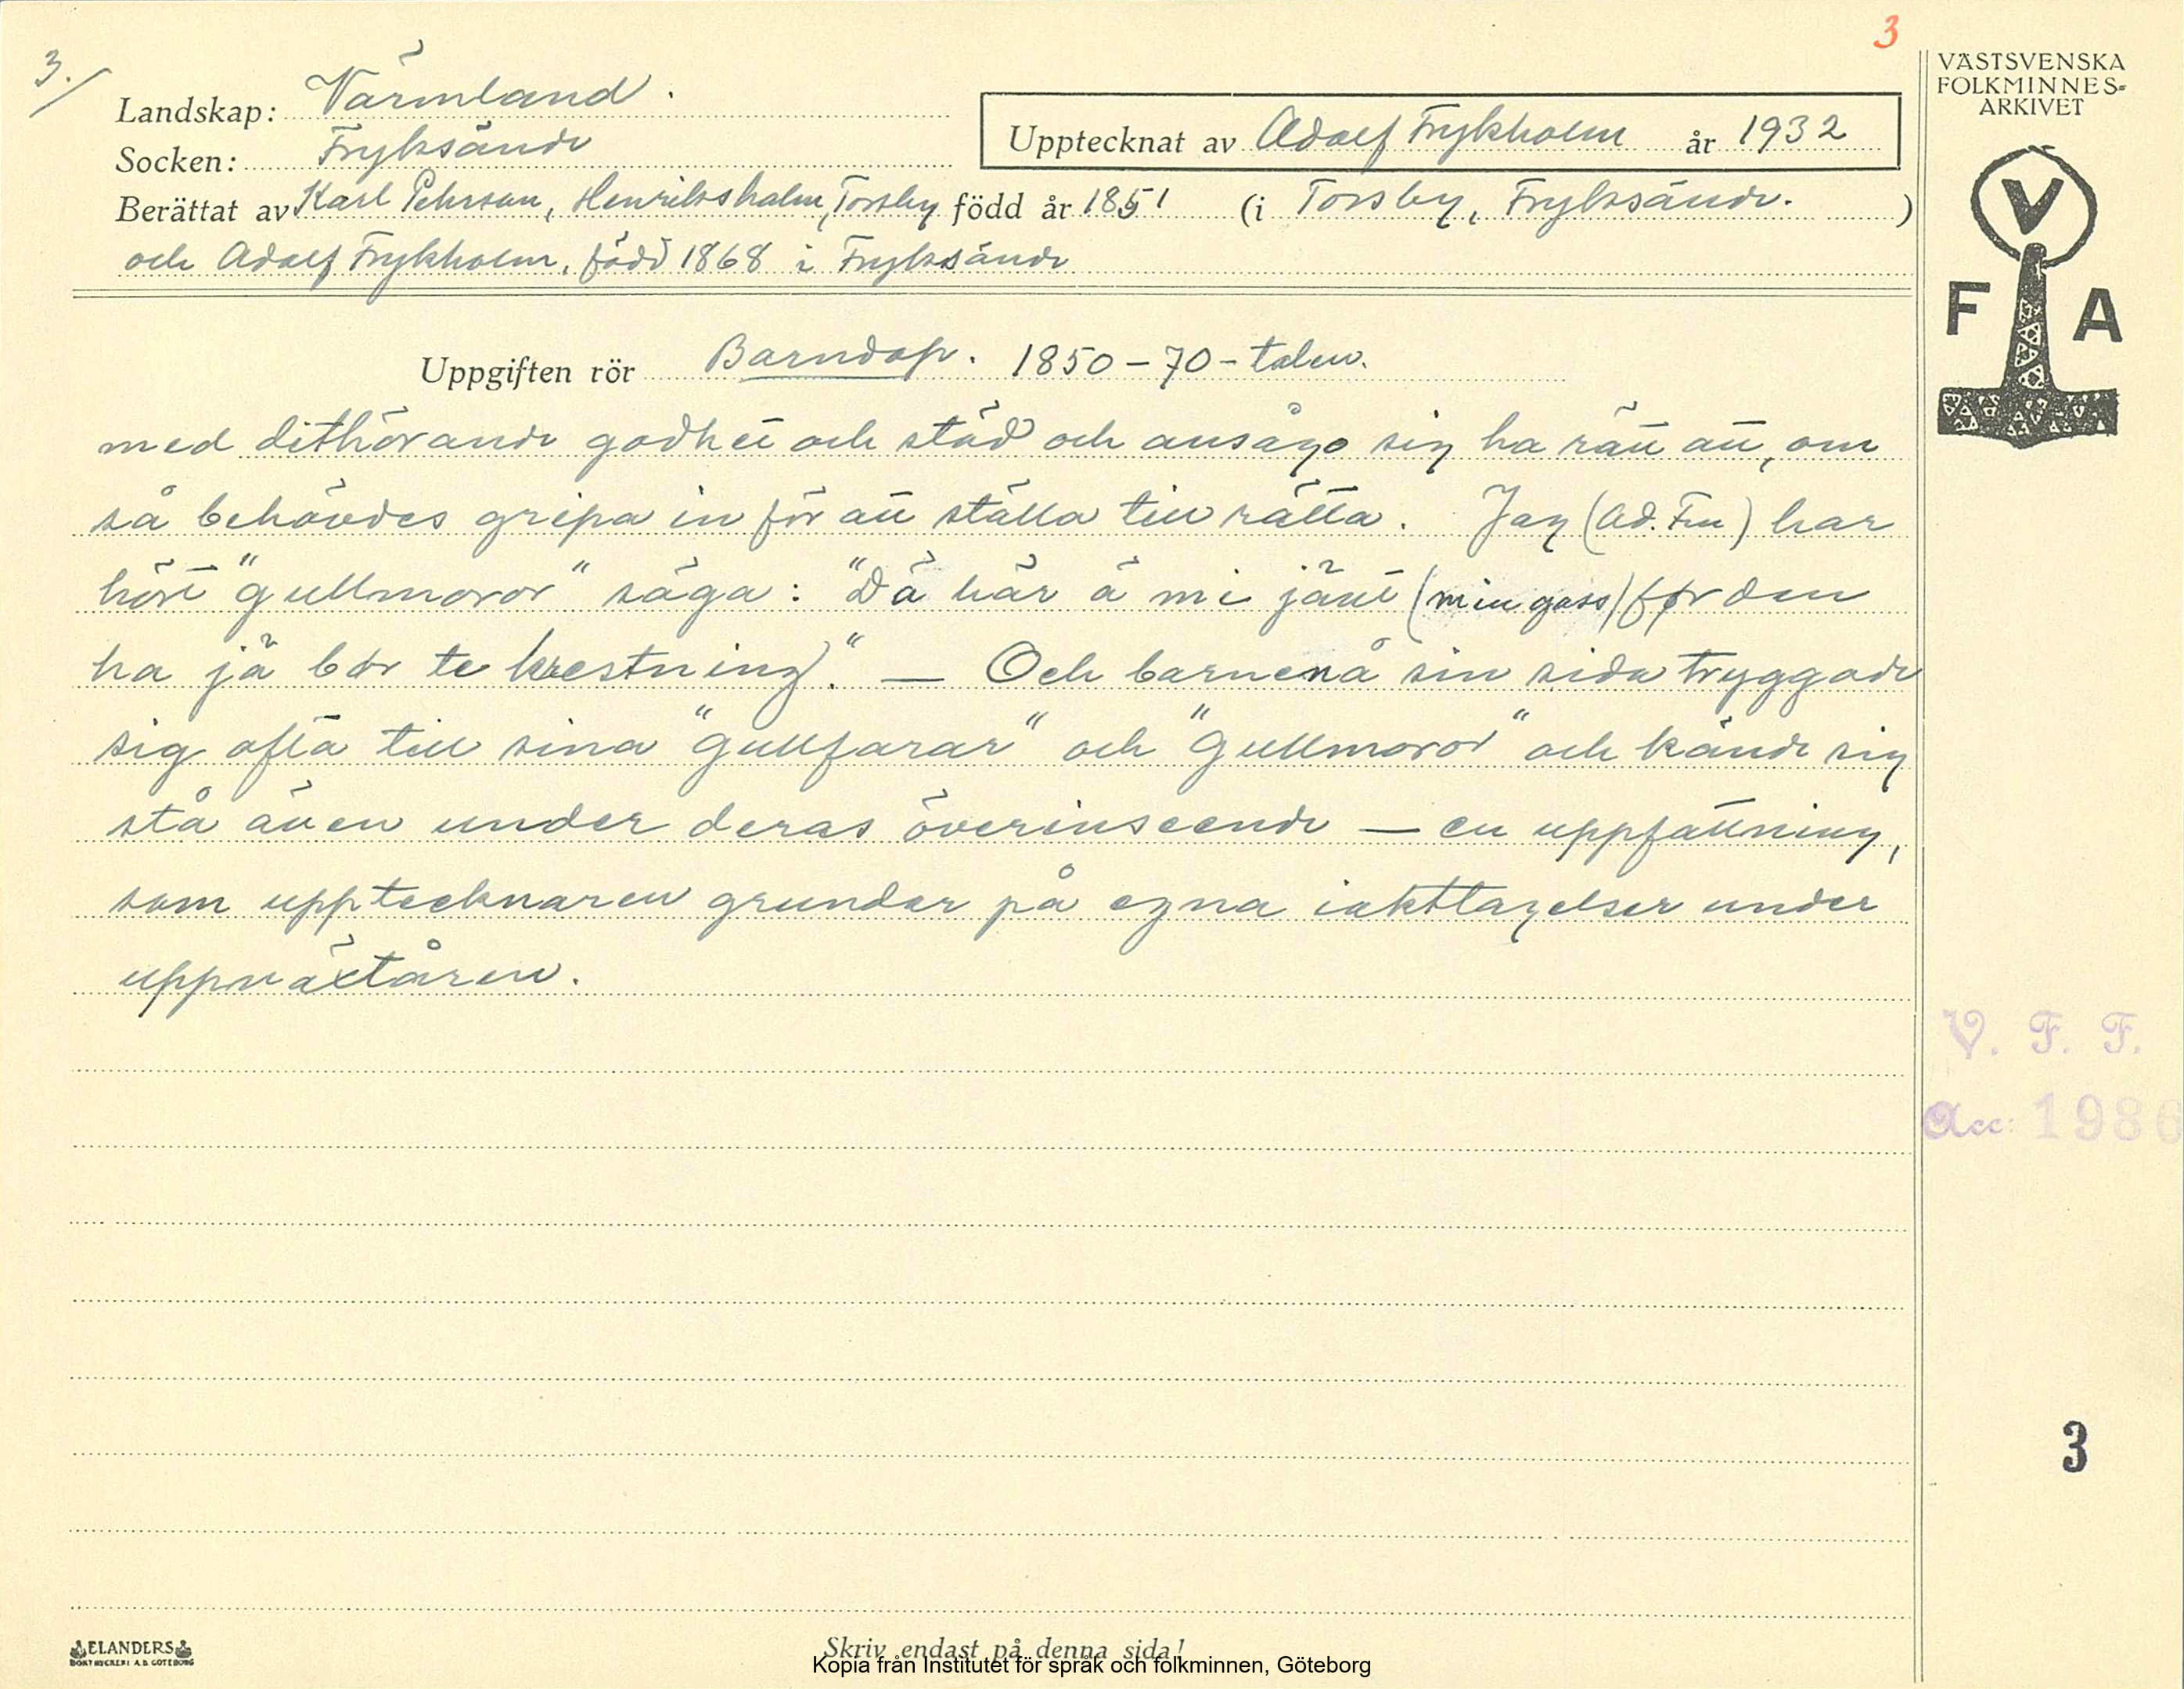 3
3./
Landskap: Värmland.
Socken: Fryksände
Upptecknat av Adolf Frykholm år 1932
Berättat av Karl Pehrson, Henriksholm, Torsby född år 1851 (i Torsby, Fryksände. )
och Adolf Frykholm, född 1868 i Fryksände
VÄSTSVENSKA
FOLKMINNES-
ARKIVET
V
F A
Uppgiften rör Barndop. 1850-70-talen.
med dithörande godhet och stöd och ansågo sig ha rätt att, om
så behövdes gripa in för att ställa till rätta. Jag (Ad. Fm) har
hört "gullmoror" säga: "Dä här ä mi jänt (min gass) för den
ha jä bör te krestning)." — Och barnen å sin sida tryggade
sig ofta till sina "gullfarar" och "gullmoror" och kände sig
stå även under deras överinseende — en uppfattning,
som upptecknaren grundar på egna iakttagelser under
uppväxtåren.
V. F. F.
Acc: 1986
3
ELANDERS
BOKTRYCKERI A.B. GÖTEBORG
Skriv endast på denna sida!
Kopia från Institutet för språk och folkminnen, Göteborg